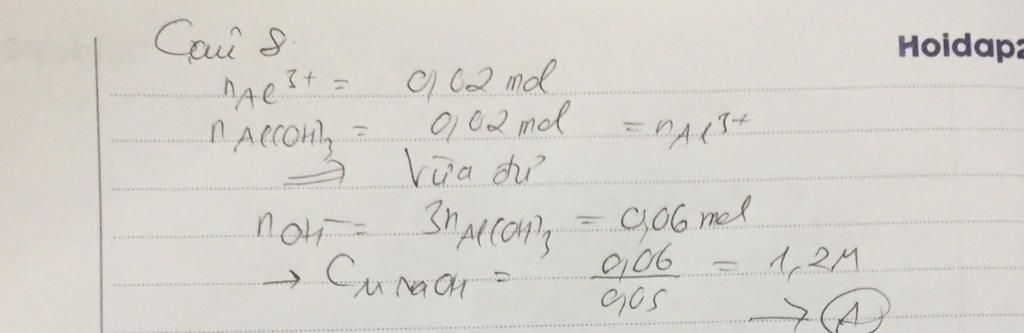 Câu 8.
Hoidap2
nAl³⁺ = 0,02 mol
nAl(OH)₃ = 0,02 mol = nAl³⁺
⇒ Vừa đủ
nOH⁻ = 3nAl(OH)₃ = 0,06 mol
→ CM NaOH = 0,06/0,05 = 1,2M
→ A